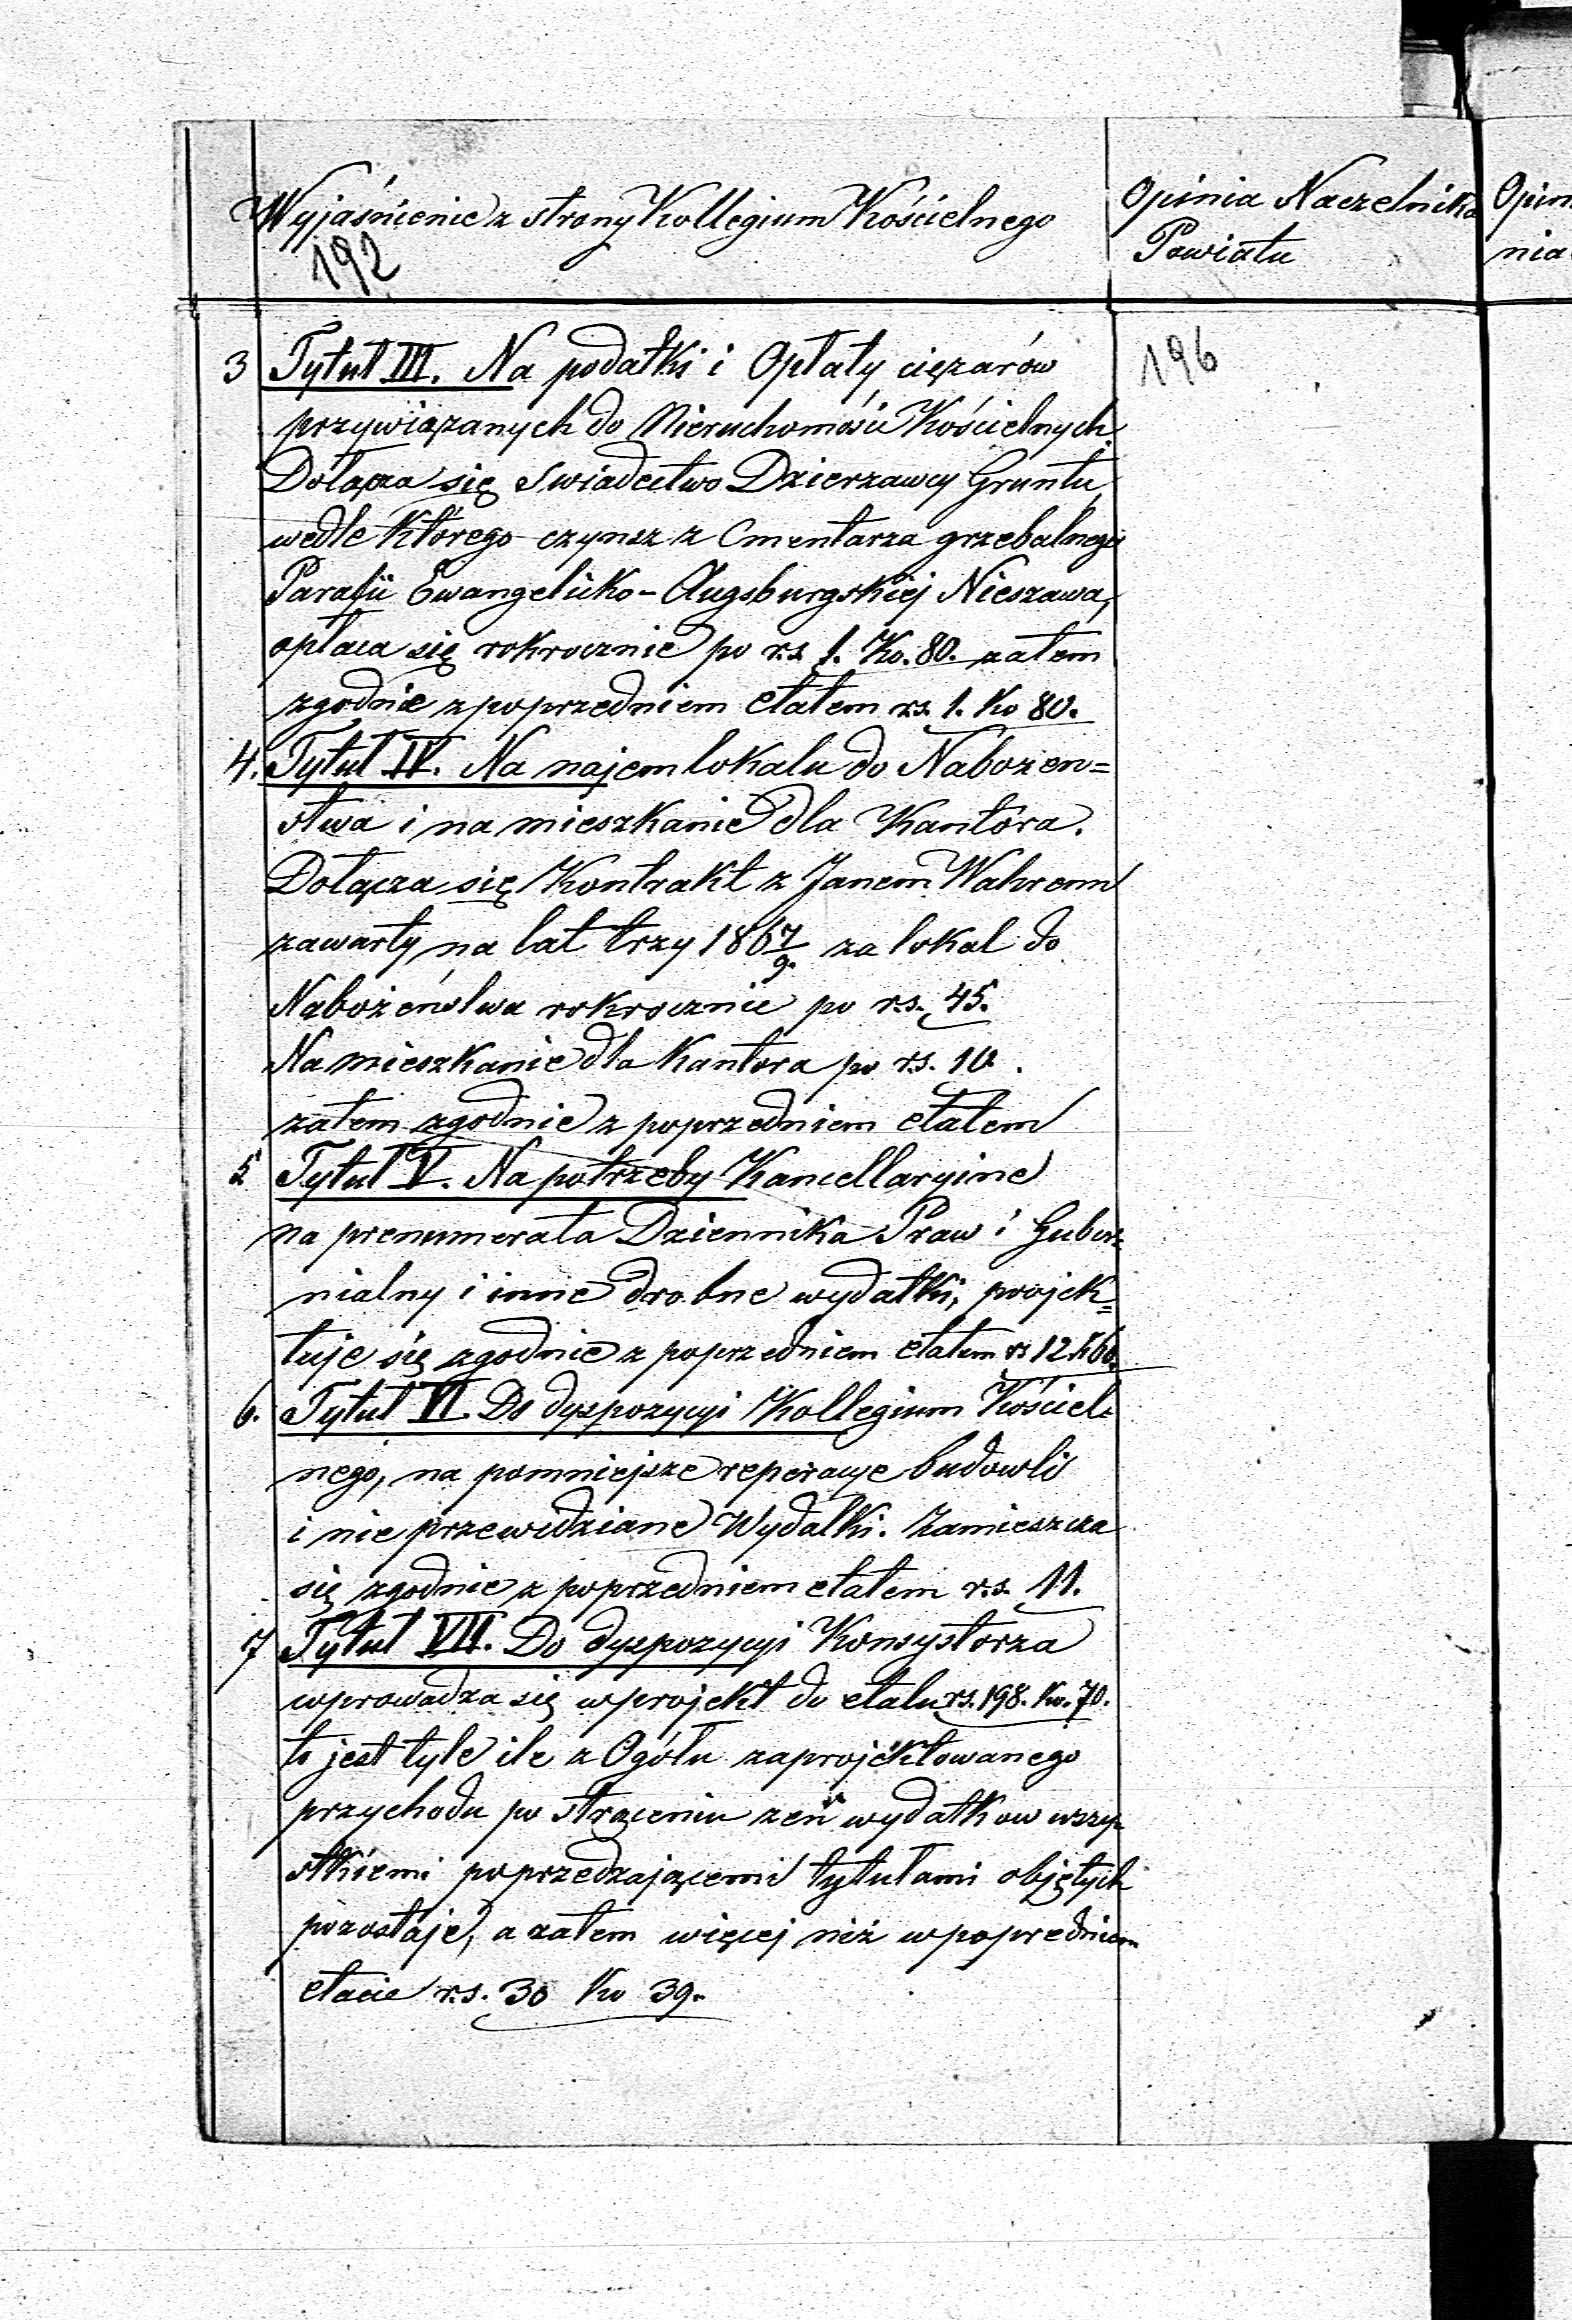 Wyjaśnienie z strony Kollegium Kościelnego
192
Opinia Naczelnika
Powiatu
Opin
nia
3 Tytuł III. Na podatki i Opłaty ciężarów
przywiązanych do Nieruchomości Kościelnych.
Dołącza się Swiadectwo Dzierzawcy Gruntu,
wedle którego czynsz z Cmentarza grzebalnego
Parafii Ewangelicko-Augsburgskiej Nieszawa,
opłaca się rokrocznie po r.s. 1. Ko. 80. zatem
zgodnie z poprzedniem etatem rs. 1. Ko 80.
4. Tytuł IV. Na najem lokalu do Nabożen=
stwa i na mieszkanie dla Kantora.
Dołącza się Kontrakt z Janem Wahrenn
zawarty na lat trzy 1867/9. za lokal do
Nabożeństwa rokrocznie po r.s. 45.
Na mieszkanie dla Kantora po r.s. 10.
zatem zgodnie z poprzedniem etatem
5 Tytuł V. Na potrzeby Kancellaryine
na prenumerata Dziennika Praw i Guber=
nialny i inne drobne wydatki, projek=
tuje się zgodnie z poprzedniem etatem rs 12 k 60.
6. Tytuł VI. Do dyspozycyi Kollegium Kościel=
nego, na pomniejsze reperacye budowli
i nie przewidziane Wydatki. Zamieszcza
się zgodnie z poprzedniem etatem r.s. 11.
7 Tytuł VII. Do dyspozycyi Konsystorza
wprowadza się w projekt do etatu rs. 198. Ko. 70.
to jest tyle ile z Ogółu zaprojektowanego
przychodu po strąceniu zeń wydatkow wszy=
stkiemi poprzedzającemi tytułami objętych
pozostaje, a zatem więcej niż w popredniem
etacie r.s. 30 Ko 39.
196